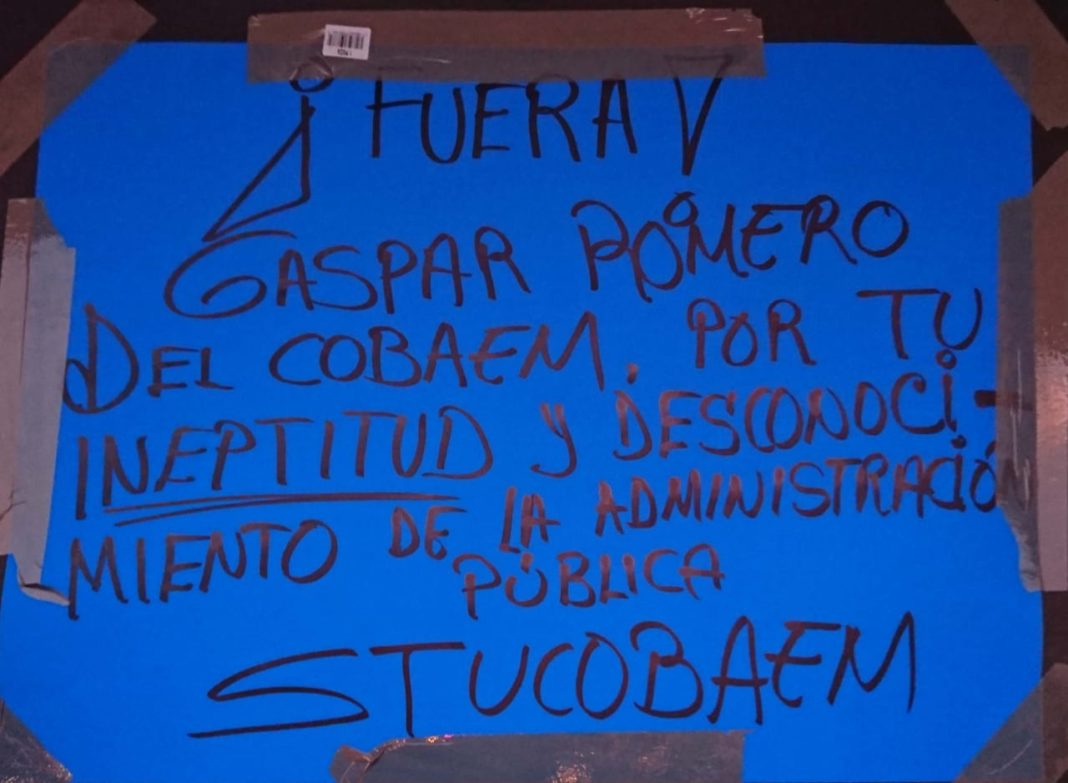 ¡FUERA!
GASPAR ROMERO
DEL COBAEM, POR TU
INEPTITUD Y DESCONOCI-
MIENTO DE LA ADMINISTRACIÓN
PÚBLICA
STUCOBAEM